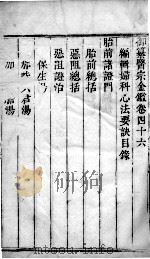 御纂醫宗金鑑卷四十六
編輯婦科心法要訣目錄
胎前諸證門
胎前總括
惡阻總括
惡阻證治
保生湯
加味六君湯
加味溫膽湯